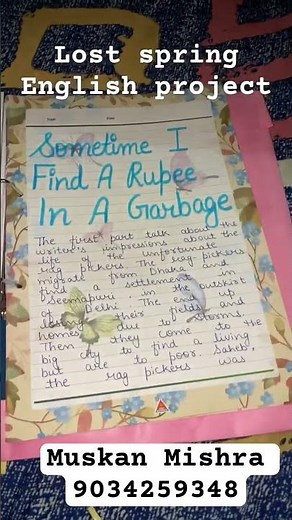 Lost spring
English project
Sometime I
Find A Rupee
In A Garbage
The first part talk about the
writer's impressions about the
life of the unfortunate
rag pickers. The rag pickers
migrate from Dhaka and
find a settlement in
Seemapuri in the outskirt
of Delhi. The end up
losing their fields and
homes due to storms.
Then they come to the
big city to find a living
but are to poor. Saheb,
the rag pickers was
Muskan Mishra
9034259348